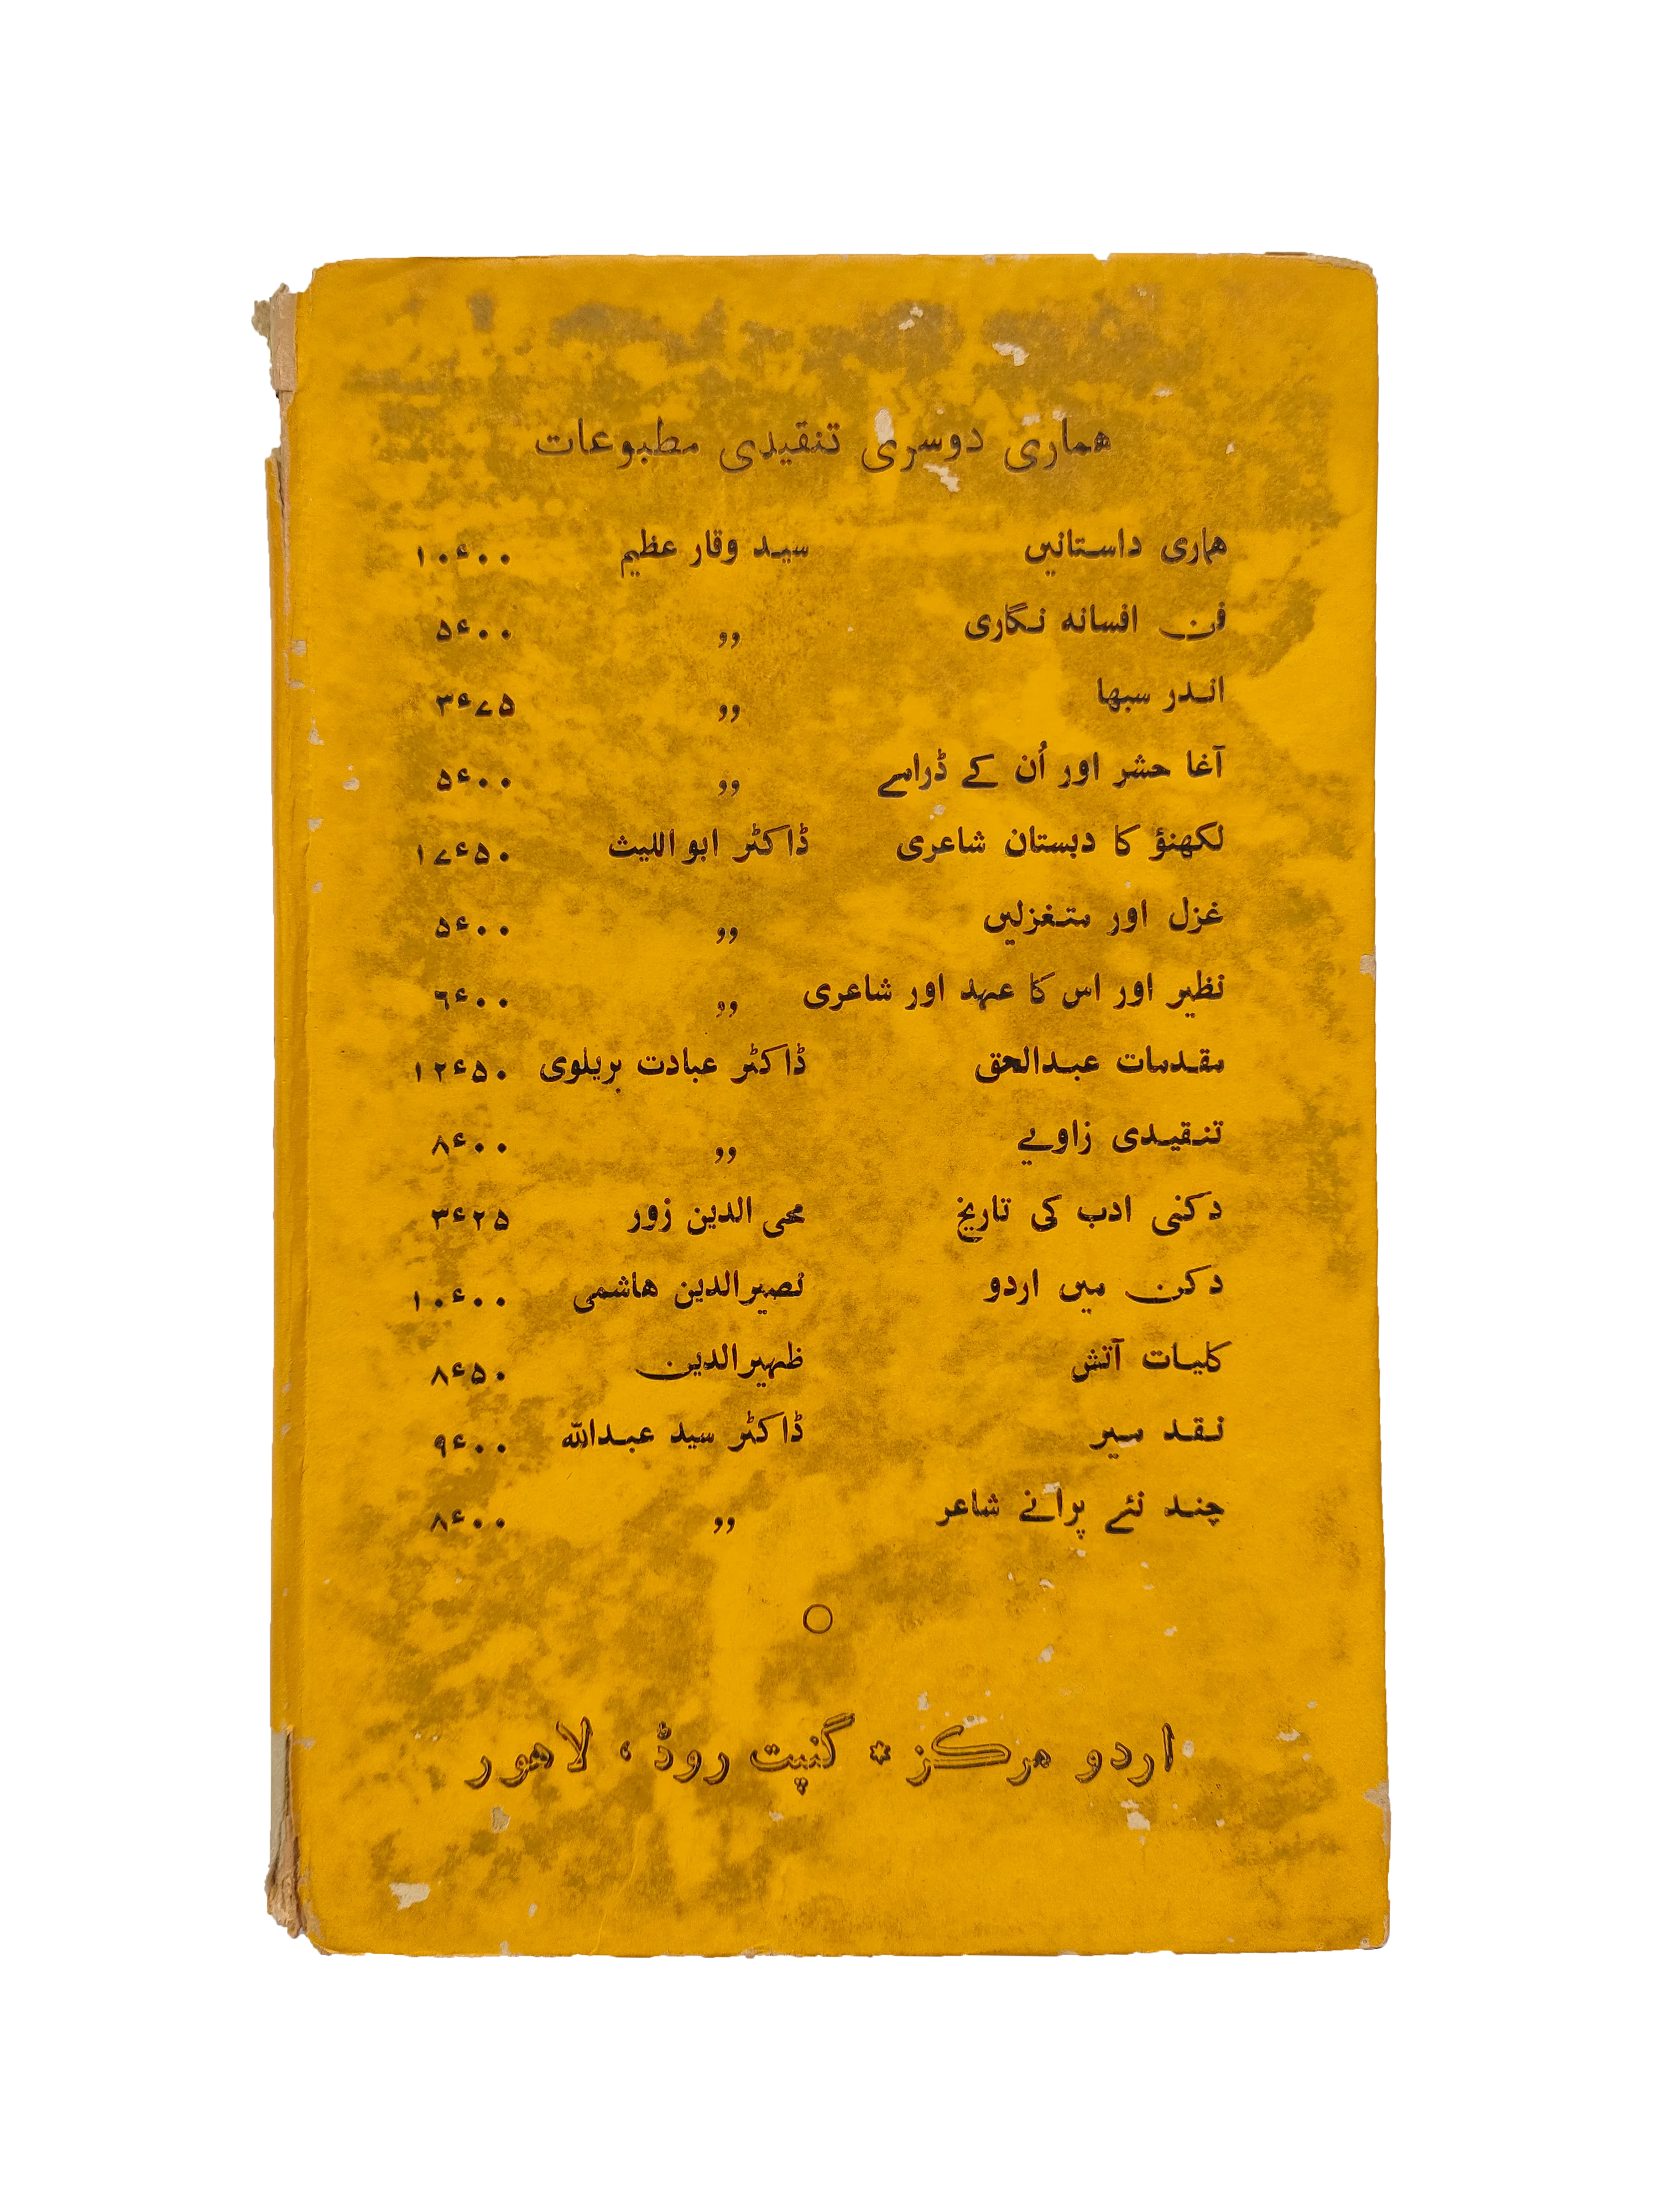 ہماری دوسری تنقیدی مطبوعات
ہماری داستانیں سید وقار عظیم ۱۰ء۰۰
فن افسانہ نگاری ,, ۵ء۰۰
اندر سبھا ,, ۳ء۷۵
آغا حشر اور اُن کے ڈرامے ,, ۵ء۰۰
لکھنؤ کا دبستان شاعری ڈاکٹر ابواللیث ۱۷ء۵۰
غزل اور متغزلیں ,, ۵ء۰۰
نظیر اور اس کا عہد اور شاعری ,, ۶ء۰۰
مقدمات عبدالحق ڈاکٹر عبادت بریلوی ۱۲ء۵۰
تنقیدی زاویے ,, ۸ء۰۰
دکنی ادب کی تاریخ محی الدین زور ۳ء۲۵
دکن میں اردو نصیرالدین ہاشمی ۱۰ء۰۰
کلیات آتش ظہیرالدین ۸ء۵۰
نقد میر ڈاکٹر سید عبداللہ ۹ء۰۰
چند نئے پرانے شاعر ,, ۸ء۰۰
اردو مرکز * گنپت روڈ، لاہور